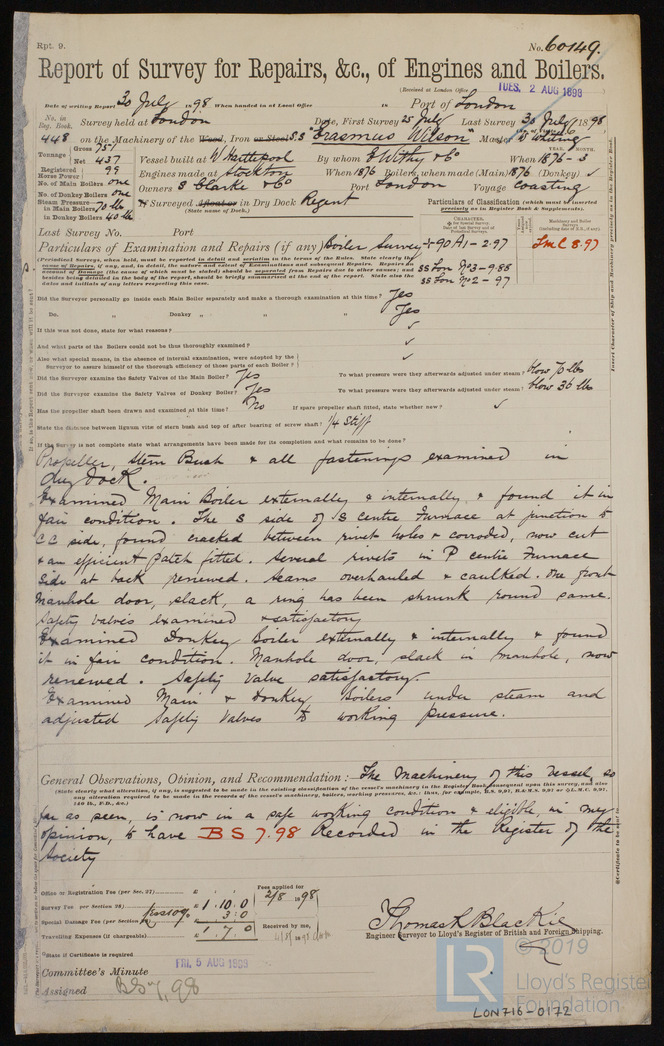 Rpt. 9.
No. 60149.
Report of Survey for Repairs, &c., of Engines and Boilers.
(Received at London Office TUES. 2 AUG 1898
Date of writing Report 30 July 1898 When handed in at Local Office 18 Port of London
No. in Reg. Book. 448 Survey held at London Date, First Survey 25 July Last Survey 30 July 1898
on the Machinery of the Wood, Iron or Steel S.S "Erasmus Wilson" Master Whiting
Tonnage Gross 751 Net 437
Vessel built at W Hartlepool By whom E Withy & Co When 1876 - 3
Registered Horse Power 99
Engines made at Stockton When 1876 Boilers, when made (Main) 1876 (Donkey) ✓
No. of Main Boilers one
No. of Donkey Boilers one
Owners S Clarke & Co Port London Voyage Coasting
Steam Pressure in Main Boilers 70 lb
in Donkey Boilers 40 lb
If Surveyed Afloat or in Dry Dock Regent
(State name of Dock.)
Particulars of Classification (which must be inserted precisely as in Register Book & Supplements).
Last Survey No. Port
Particulars of Examination and Repairs (if any) Boiler Survey + 90 A1 - 2.97 LMC 8.97
SS Lon No 3 - 9.85
SS Lon No 2 - 97
Did the Surveyor personally go inside each Main Boiler separately and make a thorough examination at this time? Yes
Do. " Donkey " " " Yes
If this was not done, state for what reasons? ✓
And what parts of the Boilers could not be thus thoroughly examined? ✓
Also what special means, in the absence of internal examination, were adopted by the Surveyor to assure himself of the thorough efficiency of those parts of each Boiler? ✓
Did the Surveyor examine the Safety Valves of the Main Boiler? Yes To what pressure were they afterwards adjusted under steam? blow 70 lbs
Did the Surveyor examine the Safety Valves of Donkey Boiler? Yes To what pressure were they afterwards adjusted under steam? blow 36 lbs
Has the propeller shaft been drawn and examined at this time? No If spare propeller shaft fitted, state whether new? ✓
State the distance between lignum vitæ of stern bush and top of after bearing of screw shaft? 1/4 Stiff
If the Survey is not complete state what arrangements have been made for its completion and what remains to be done?
Propeller, Stern Bush & all fastenings examined in
dry dock.
Examined Main Boiler externally & internally & found it in
fair condition. The S side of S centre Furnace at junction to
CC side, found cracked between rivet holes & corroded, now cut
& an efficient patch fitted. Several rivets in P centre Furnace
side at back renewed. Seams overhauled & caulked. One front
Manhole door, slack, a ring has been shrunk round same.
Safety valves examined & satisfactory
Examined Donkey Boiler externally & internally & found
it in fair condition. Manhole door, slack in manhole, now
renewed. Safety Valve satisfactory.
Examined Main & Donkey Boilers under steam and
adjusted Safety Valves to working pressure.
General Observations, Opinion, and Recommendation :— The Machinery of this Vessel, so
(State clearly what alteration, if any, is suggested to be made in the existing classification of the vessel's machinery in the Register Book consequent upon this survey, and also
far as seen, is now in a safe working condition & eligible, in my
opinion, to have BS 7.98 Recorded in the Register of the
Society
Office or Registration Fee (per Sec. 27)
Survey Fee (per Section 28) £ 1 : 10 : 0
Special Damage Fee (per Section less 10% 3 : 0
Travelling Expenses (if chargeable) £ 1 . 7 . 0
Fees applied for 2/8 1898
Received by me,
Thomas R Blackie
Engineer Surveyor to Lloyd's Register of British and Foreign Shipping.
*State if Certificate is required
Committee's Minute FRI. 5 AUG 1898
Assigned BS 7,98
© 2019
LR
Lloyd's Register
Foundation
LON716-0172